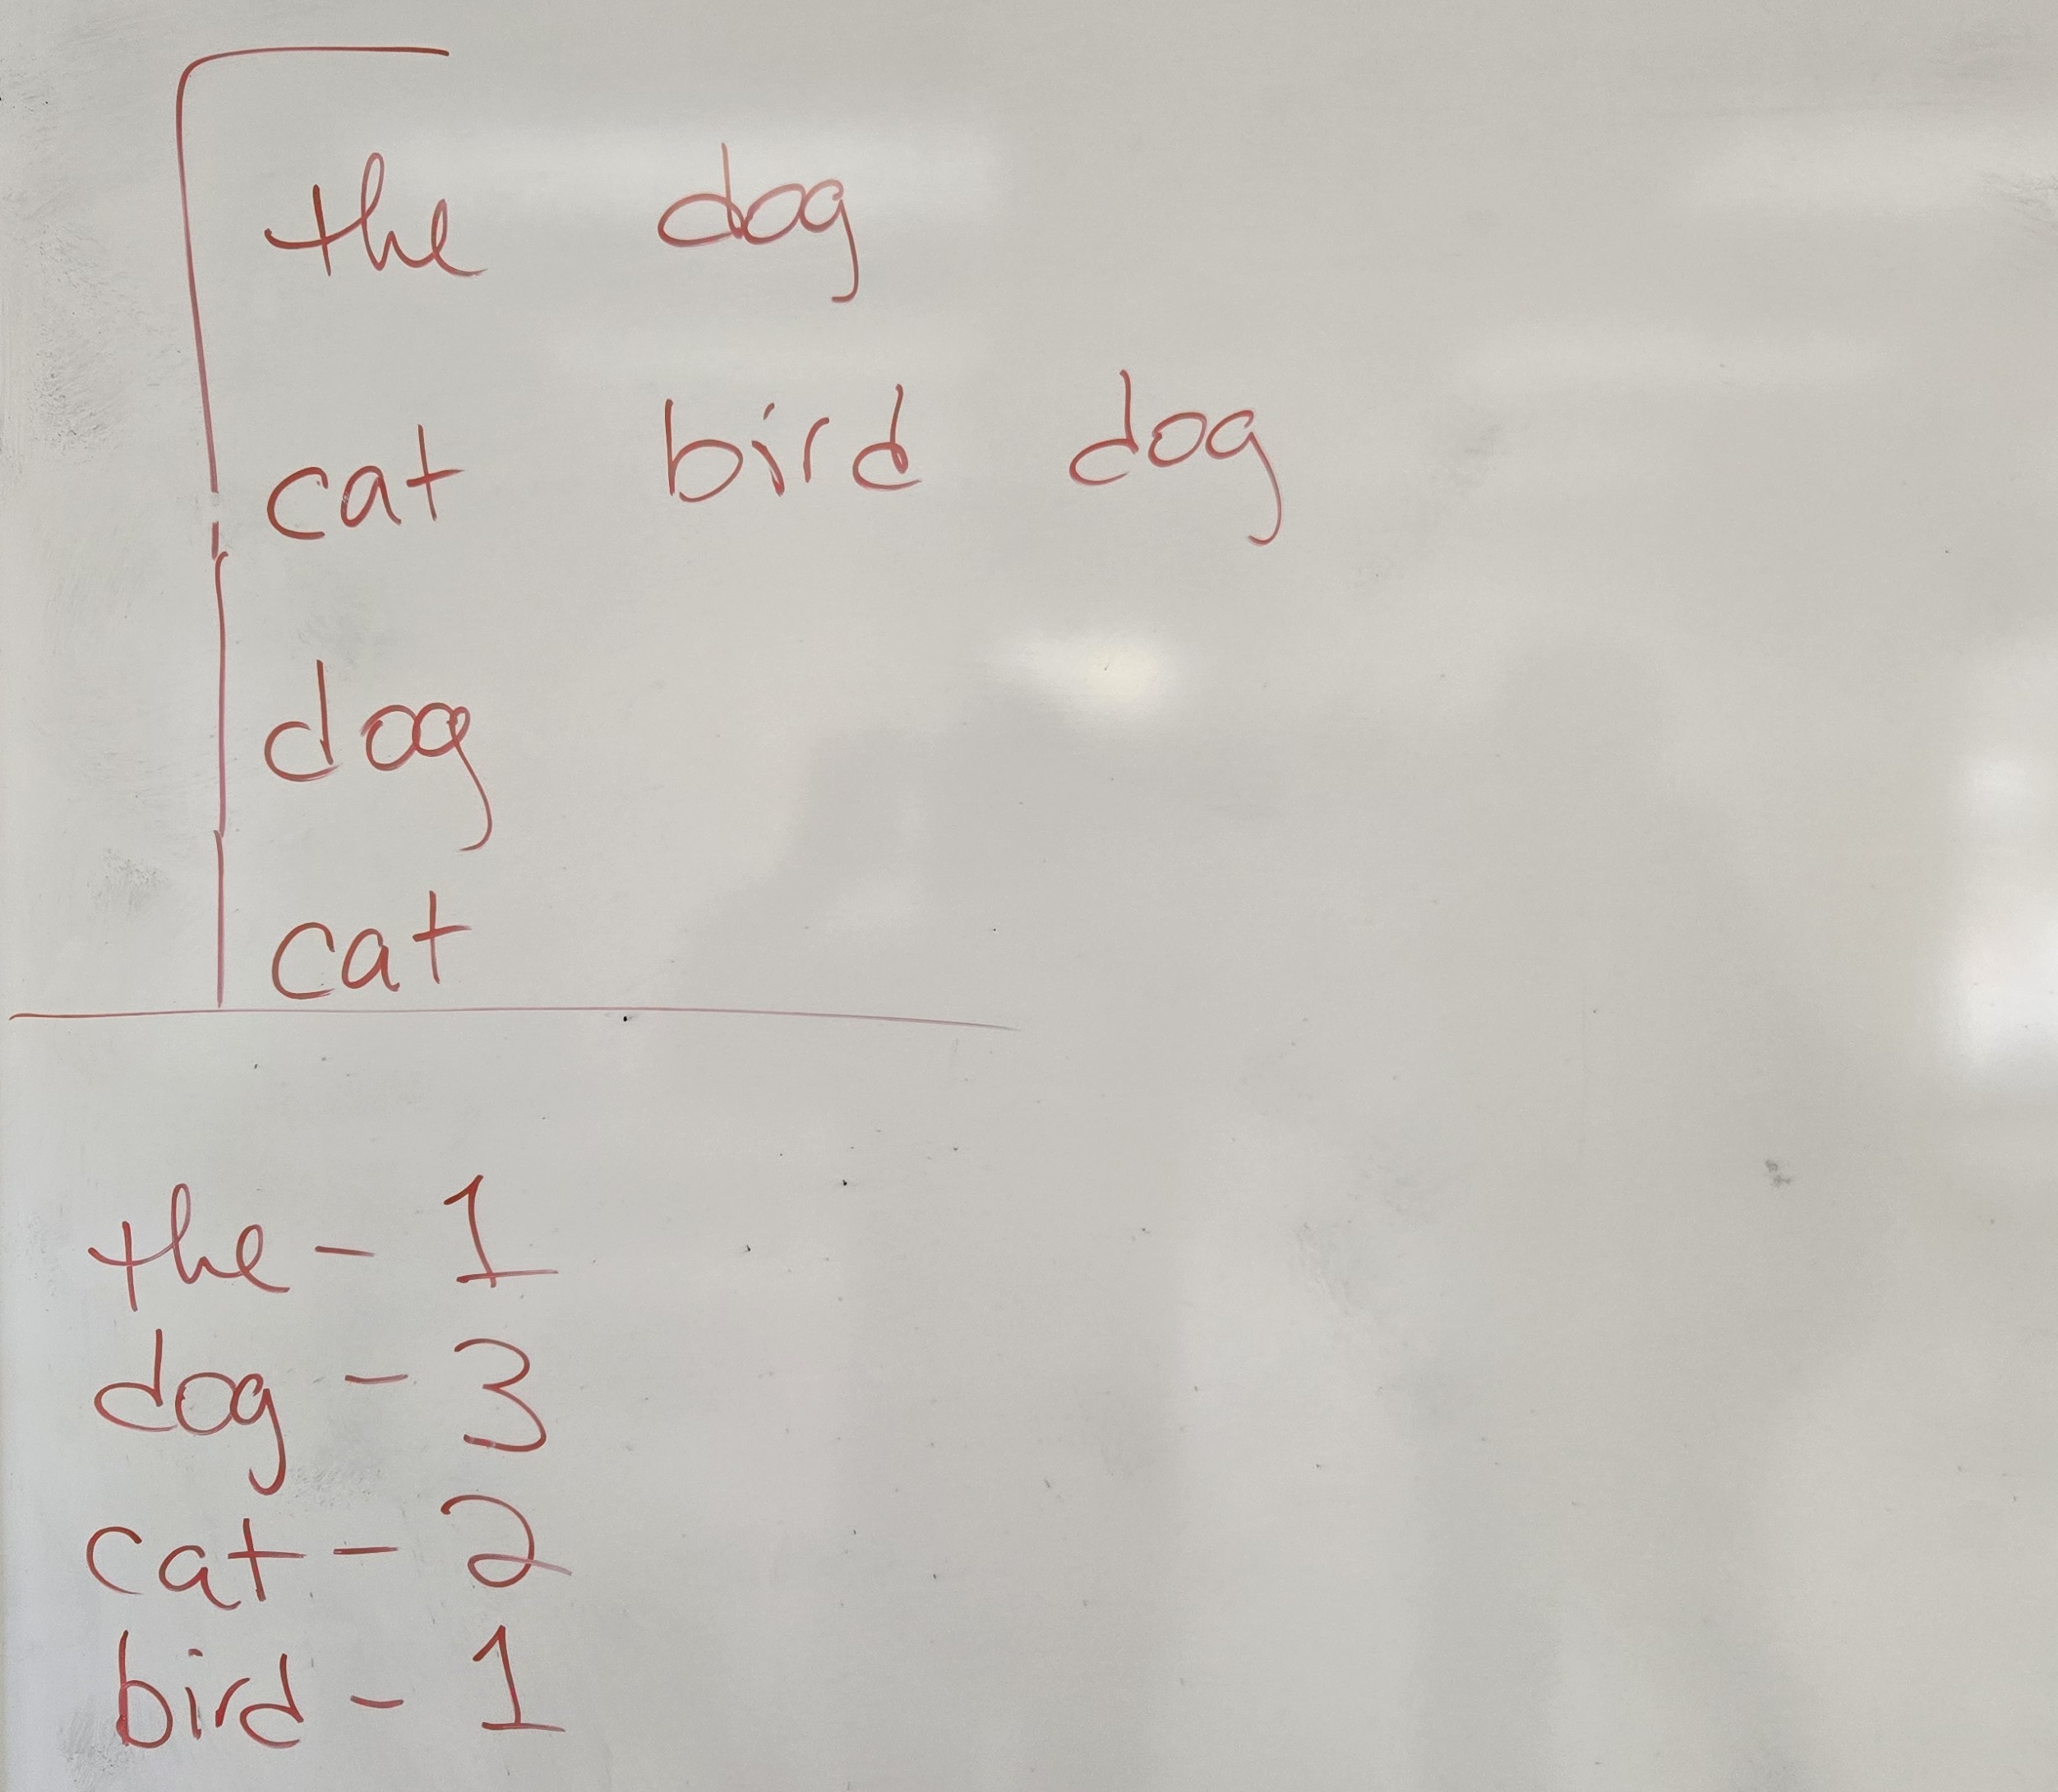 the dog
cat bird dog
dog
cat
the - 1
dog - 3
cat - 2
bird - 1